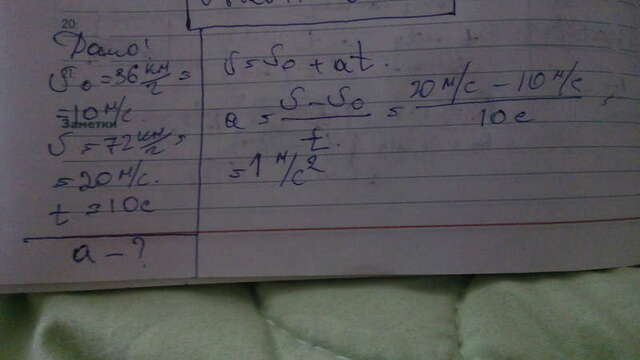 20
Дано:
υ₀ = 36 км/г =
= 10 м/с.
Заметки
υ = 72 км/г =
= 20 м/с.
t = 10 с
a - ?
υ = υ₀ + at.
a = (υ - υ₀)/t. = (20 м/с - 10 м/с)/10 с =
= 1 м/с²